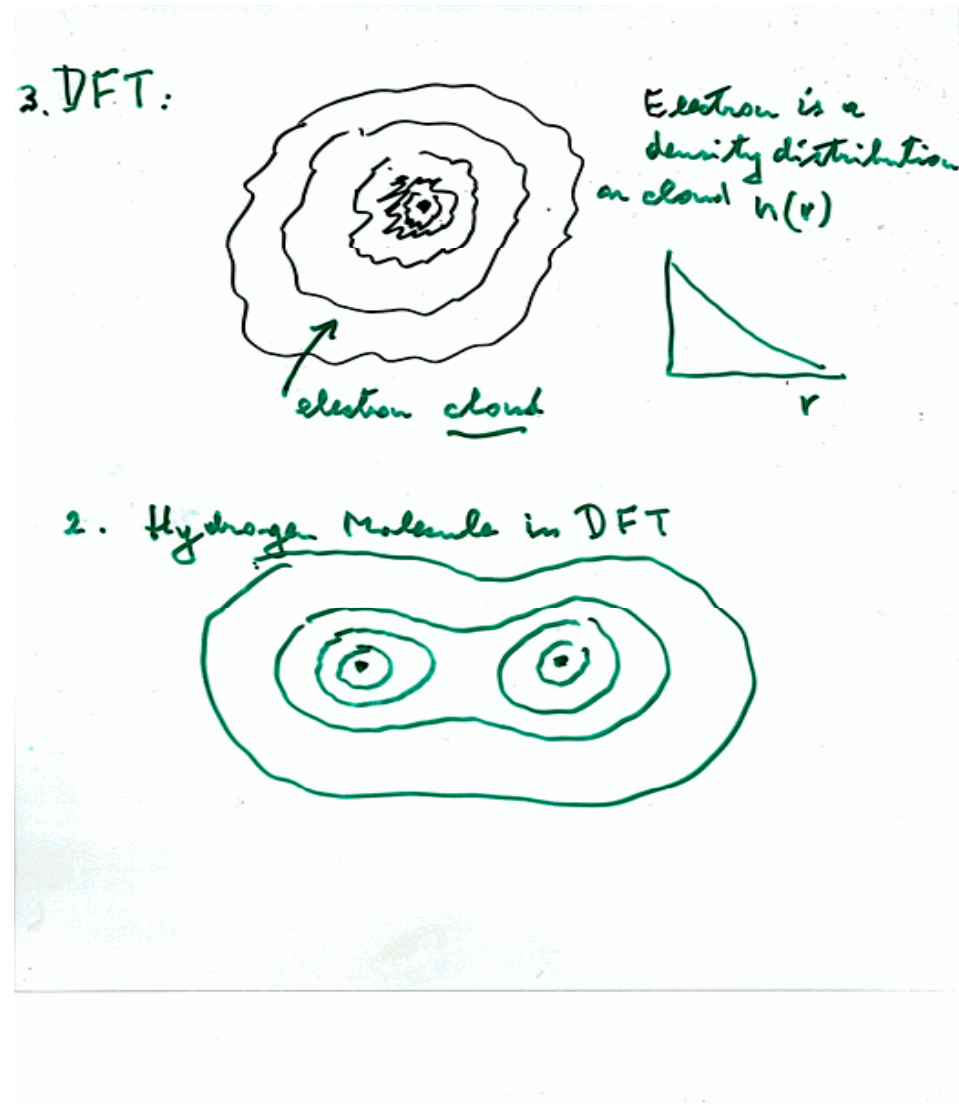 3. DFT:
Electron is a
density distribution
or cloud n(r)
r
electron cloud
2. Hydrogen Molecule in DFT